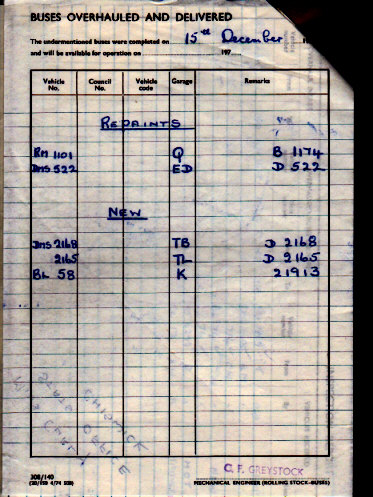 BUSES OVERHAULED AND DELIVERED
The undermentioned buses were completed on 15th December
and will be available for operation on 197
Vehicle No. Council No. Vehicle code Garage Remarks
REPAINTS
RM 1101 Q B 1174
DMS 522 ED D 522
NEW
DMS 2168 TB D 2168
2165 TL D 2165
BL 58 K 21913
CHISWICK
STATS OFFICE
C. F. GREYSTOCK
308/140
MECHANICAL ENGINEER (ROLLING STOCK—BUSES)